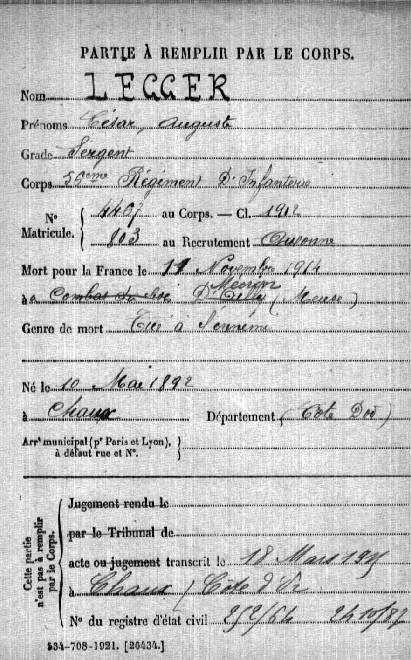 PARTIE À REMPLIR PAR LE CORPS.
Nom LEGGER
Prénoms César, Auguste
Grade Sergent
Corps Régiment D'Infanterie
Nº Matricule. { au Corps. — Cl. 1912
803 au Recrutement Auxonne
Mort pour la France le Novembre 1914
à Combat (Meuse)
Genre de mort Tué à l'ennemi
Né le 10 Mai 1892
à Chaux Département (Côte Dor)
Arrt municipal (pr Paris et Lyon), à défaut rue et Nº.
Cette partie n'est pas à remplir par le Corps.
Jugement rendu le
par le Tribunal de
acte ou jugement transcrit le 18 Mars
à Chaux (Côte d'Or
Nº du registre d'état civil
534-708-1921. [26434.]